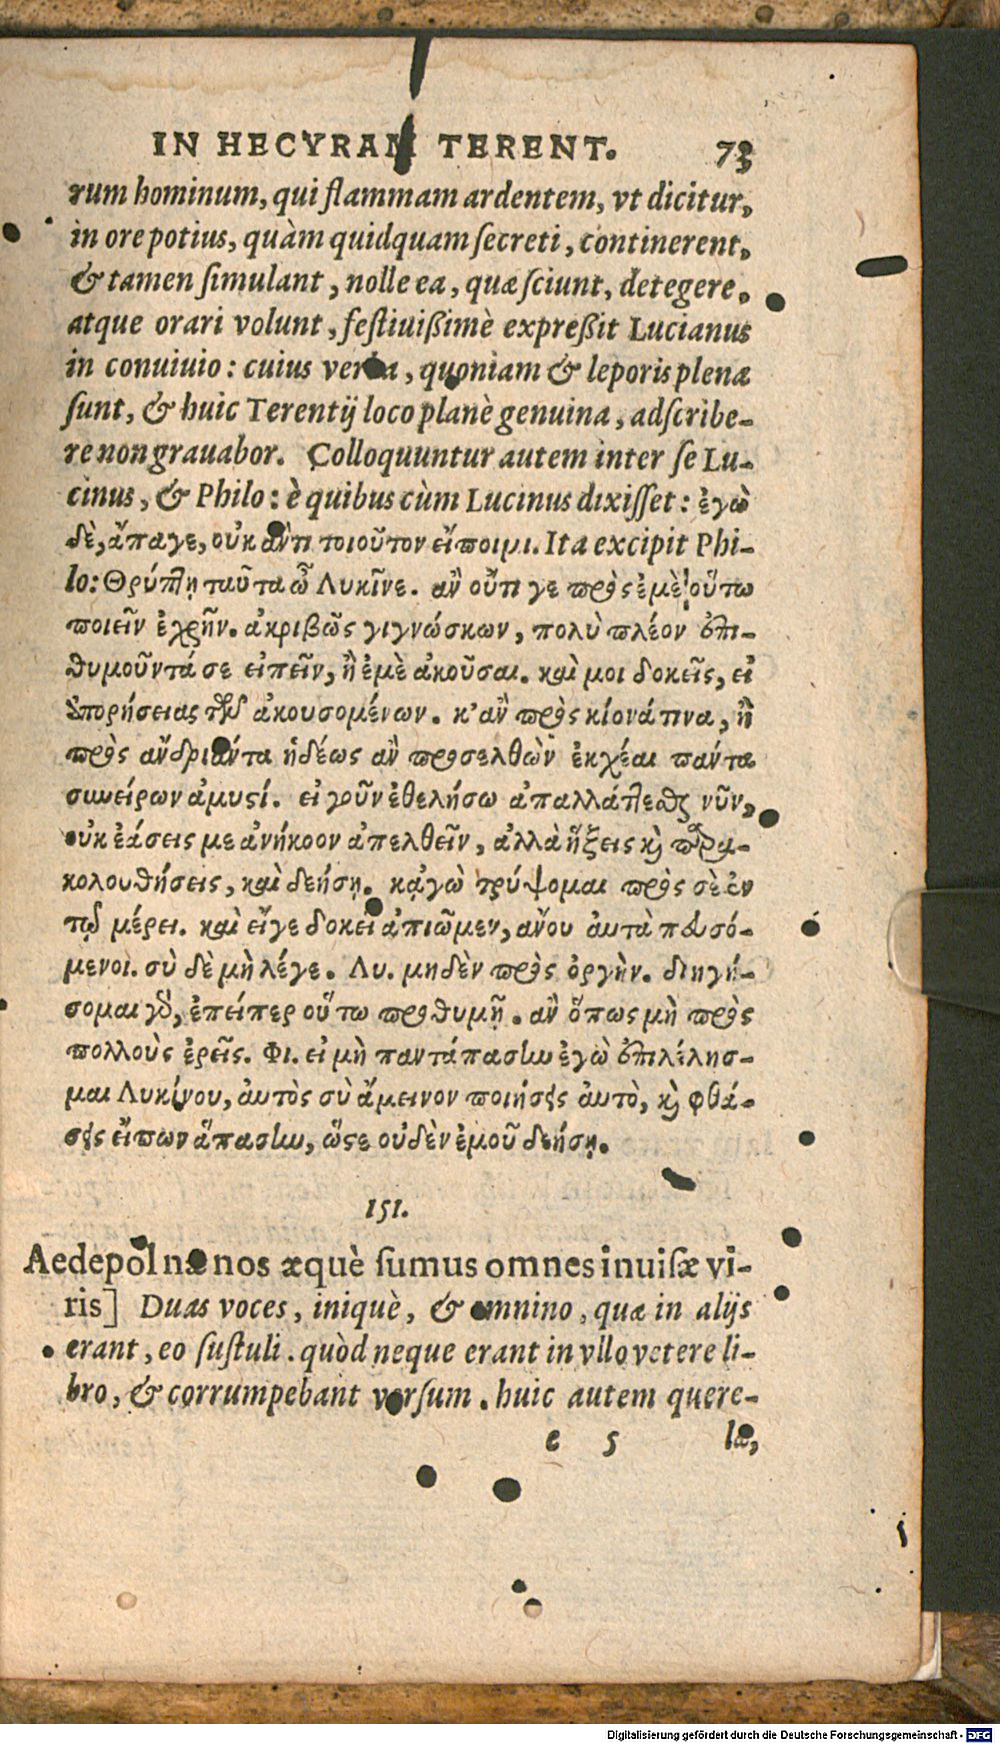 IN HECYRAM TERENT. 73
rum hominum, qui flammam ardentem, vt dicitur,
in ore potius, quàm quidquam ſecreti, continerent,
& tamen ſimulant, nolle ea, quæ ſciunt, detegere,
atque orari volunt, feſtiuißimè expreßit Lucianus
in conuiuio: cuius verba, quoniam & leporis plena
ſunt, & huic Terentij loco planè genuina, adſcribe-
re non grauabor. Colloquuntur autem inter ſe Lu-
cinus, & Philo: è quibus cùm Lucinus dixiſſet: ἐγὼ
δὲ, ἄπαγε, οὐκ ἄν τι τοιοῦτον εἴποιμι. Ita excipit Phi-
lo: Θρύπτῃ ταῦτα ὦ Λυκῖνε. ἂν οὔτι γε πρὸς ἐμὲ οὕτω
ποιεῖν ἐχρῆν. ἀκριβῶς γιγνώσκων, πολὺ πλέον ἐπι-
θυμοῦντά σε εἰπεῖν, ἢ ἐμὲ ἀκοῦσαι. καὶ μοι δοκεῖς, εἰ
ἀπορήσειας τῶν ἀκουσομένων. κ' ἂν πρὸς κίονά τινα, ἢ
πρὸς ἀνδριάντα ἡδέως ἂν προσελθὼν ἐκχέαι πάντα
συνείρων ἀμυστί. εἰ γοῦν ἐθελήσω ἀπαλλάττεσθαι νῦν,
οὐκ ἐάσεις με ἀνήκοον ἀπελθεῖν, ἀλλὰ ἥξεις καὶ παρα-
κολουθήσεις, καὶ δεήσῃ. κᾀγὼ τρύψομαι πρὸς σὲ ἐν
τῷ μέρει. καὶ εἴγε δοκεῖ ἀπιῶμεν, ἄνου ἀυτὰ πευσό-
μενοι. σὺ δὲ μὴ λέγε. Λυ. μηδὲν πρὸς ὀργὴν. διηγή-
σομαι γὰρ, ἐπείπερ οὕτω προθυμῇ. ἂν ὅπως μὴ πρὸς
πολλοὺς ἐρεῖς. Φι. εἰ μὴ παντάπασιν ἐγὼ ἐπιλέλησ-
μαι Λυκίνου, ἀυτὸς σὺ ἄμεινον ποιήσεις ἀυτὸ, καὶ φθά-
σεις εἴπων ἅπασιν, ὥστε οὐδὲν ἐμοῦ δεήσῃ.
151.
Aedepol næ nos æquè ſumus omnes inuiſæ vi-
ris] Duas voces, iniquè, & omnino, quæ in alijs
erant, eo ſuſtuli. quòd neque erant in vllo vetere li-
bro, & corrumpebant verſum. huic autem quere-
e 5 læ,
Digitalisierung gefördert durch die Deutsche Forschungsgemeinschaft - DFG